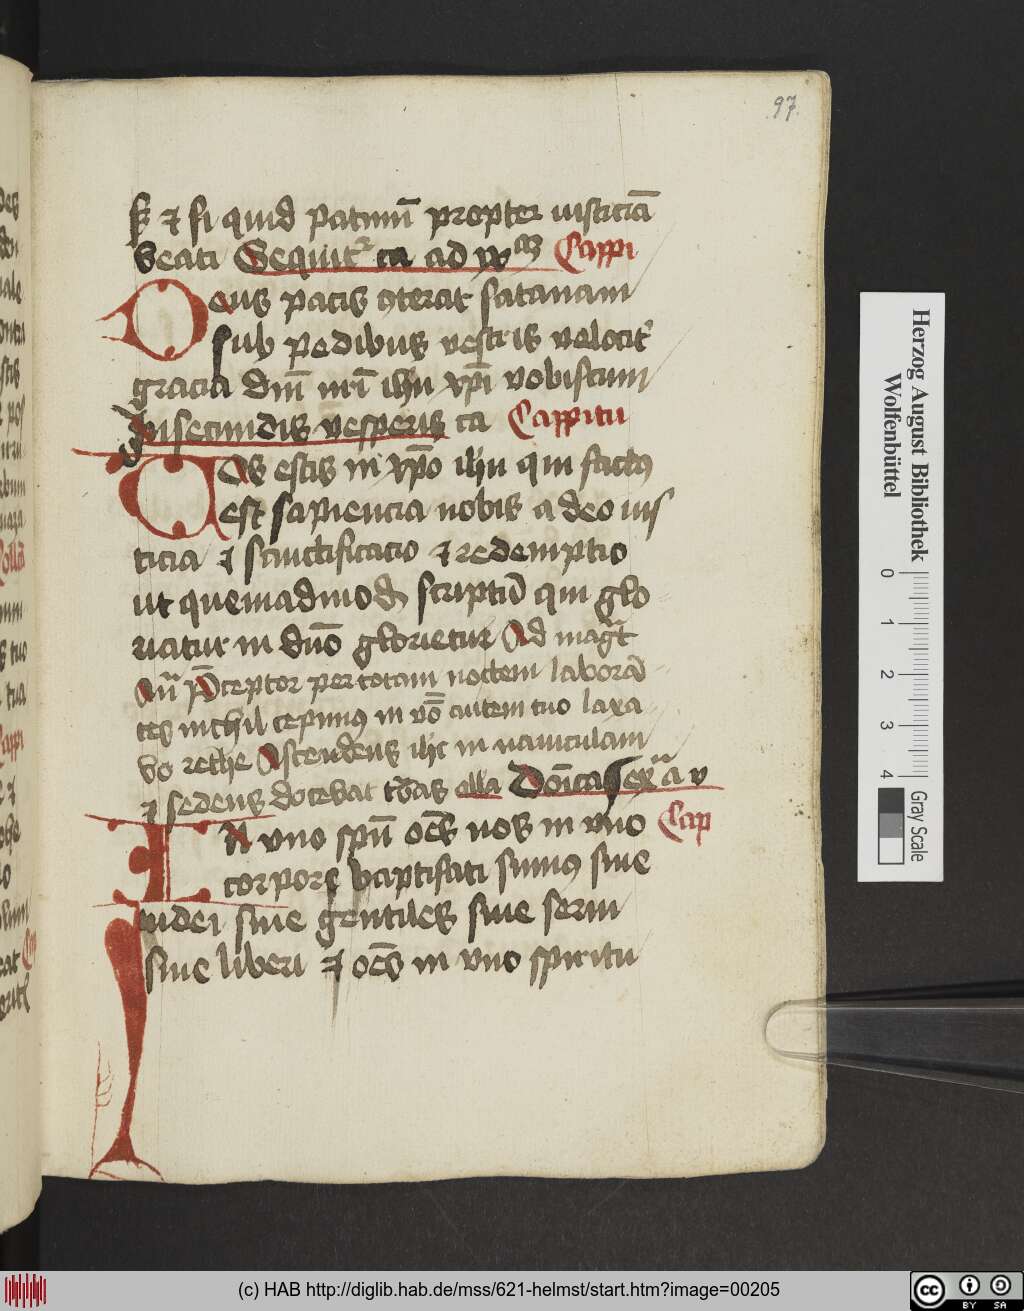 97.
⁊ si quid patimini propter iusticiā
beati Sequitᷓ ca ad Cappi
Deus pacis ꝯterat satanam
sub pedibus vestris velocit᷑
gracia dm̄ nrī ihū xp̄i vobiscum
In secundis vesperis ca Cappitu
Vos estis in xp̄o ihū qui factꝰ
est sapiencia nobis a deo ius
ticia ⁊ sanctificacio ⁊ redemptio
ut quemadmodū scriptū qui glo
riatur in dn̄o glorietur Ad magͭ
Añ P̄ceptor per totam noctem laborā
tes nichil cepimꝰ in vō autem tuo laxa
bo rethe Ascendens ihc in nauiculam
⁊ sedens docebat tᷓbas alla Dōica Sexᷓta v
In vno spū oēs nos in vno Cap
corpore baptisati sumꝰ siue
iudei siue gentiles siue serui
siue liberi ⁊ oēs in vno spiritu
Herzog August Bibliothek
Wolfenbüttel
0 1 2 3 4
Gray Scale
(c) HAB http://diglib.hab.de/mss/621-helmst/start.htm?image=00205
cc BY SA